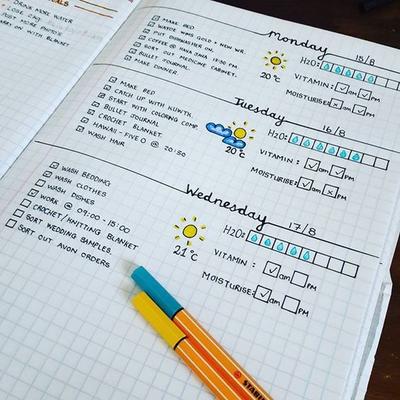 DRINK MORE WATER
JUST MORE
CARRY ON WITH BLANKET
Monday
15/8
MAKE BED
WATCH WMS GOLD + NEW WR.
PUT DISHWASHER ON.
COFFEE @ 13:30 PM
SORT OUT MEDICINE CABINET.
BULLET JOURNAL.
MAKE DINNER.
20°C
H2O:
VITAMIN:
am
PM
MOISTURISE:
am
PM
Tuesday
16/8
MAKE BED
CATCH UP WITH
START WITH COLORING COMP.
BULLET JOURNAL
CROCHET BLANKET.
HAWAII - FIVE O @ 20:30
WASH HAIR
20°C
H2O:
VITAMIN:
am
PM
MOISTURISE:
am
PM
Wednesday
17/8
WASH BEDDING
WASH CLOTHES
WASH DISHES
WORK @ 09:00 - 15:00
CROCHET/KNITTING BLANKET
SORT WEDDING SAMPLES.
SORT OUT AVON ORDERS
21°C
H2O:
VITAMIN:
am
PM
MOISTURISE:
am
PM
STABILO